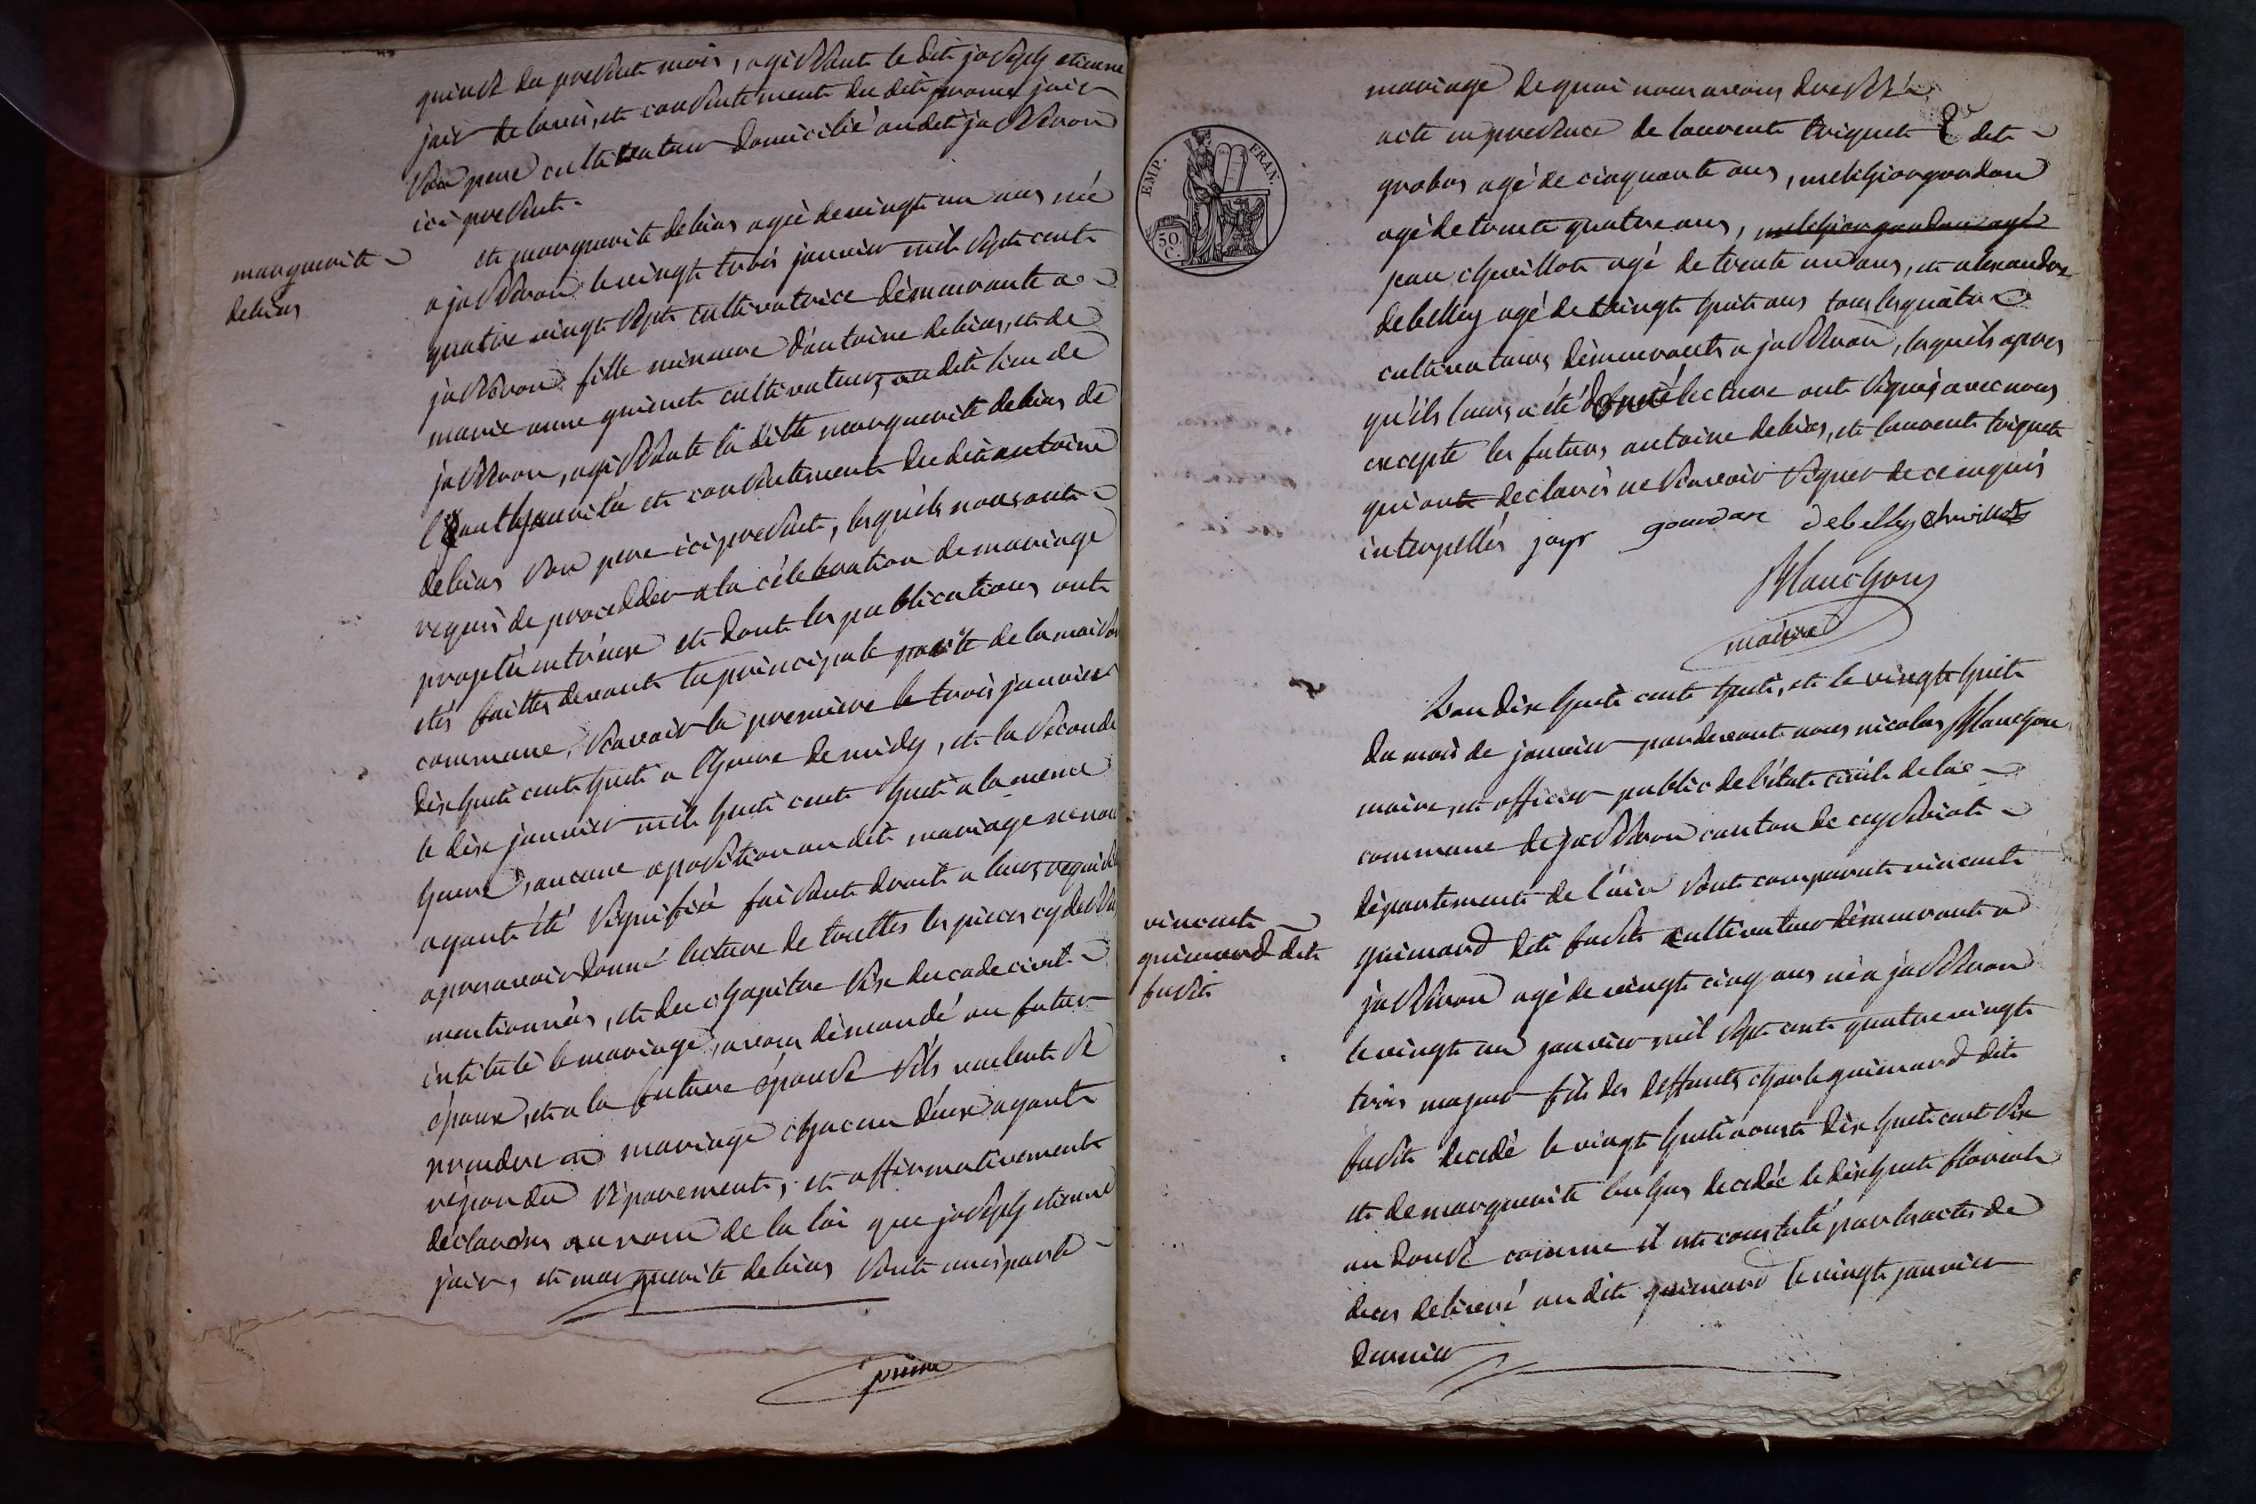 quinze du present mois, agissant le dit joseph etienne
jair de lavis, et consentement du dit jair
son pere cultivateur domicilié audit jasseron
ici present.
marguerite
debias
et marguerite debias agée de vingt un ans née
a jasseron le vingt trois janvier mil sept cent
quatre vingt sept cultivatrice demeurante a
jasseron fille mineure d'antoine debias, et de
marie anne guienet cultivateurs au dit lieu de
jasseron, agissante la ditte marguerite debias de
l'authaurité et consentement du dit antoine
debias son pere ici present, lesquels nous ont
requis de procedder a la célebration de mariage
projetté entr'eux et dont les publications ont
étés faittes devant la principale porte de la maison
commune, scavoir la premiere le trois janvier
dix huit cent huit a lheure de midy, et la seconde
le dix janvier mil huit cent huit a la meme
heure, aucune aposition au dit mariage ne nous
ayant été signifiée faisant droit a leurs requis
apres avoir donné lecture de touttes les pieces cy dessus
mentionnées, et du chapitre six du code civil
intitulé le mariage, avons démandé au futur
époux, et a la future épouse s'ils veulent se
prendre en mariage chacun d'eux ayant
répondu séparement, et affirmativement
déclarons au nom de la loi que joseph etienne
jair, et marguerite debias sont unis par le
EMP. FRAN.
50
C.
mariage de quoi nous avons dressé
acte en presence de laurent triquet dit
grobas agé de cinquante ans, melchior gourdan
agé de trente quatre ans, melchior gourdan agé
jean chuillot agé de trente un ans, et alexandre
debelley agé de vingt huit ans tous les quatre
cultivateurs démeurants a jasseron, lesquels apres
qu'ils leurs a été donné lecture ont signés avec nous
excepté les futurs antoine debias, et laurent triquet
qui ont declarés ne scavoir signer de ce enquis
interpellés jayr gourdan debelley chuillot
Blanchon
maire
L'an dix huit cent huit, et le vingt huit
du mois de janvier pardevant nous nicolas Blanchon
maire, et officier public de l'état civil de la
commune de jasseron canton de ceyseriat
département de l'ain sont comparut vincent
guimard dit fusit cultivateur démeurant a
jasseron agé de vingt cinq ans né a jasseron
le vingt un janvier mil sept cent quatre vingt
trois majeur fils des deffunts charle guimard dit
fusit décédé le vingt huit aoust dix huit cent six
et de marguerite buhas decedée le dix huit floreal
an douze comme il est constaté par les actes de
deces delivré au dit guimard le vingt janvier
dernier
vincent
guimard dit
fusit